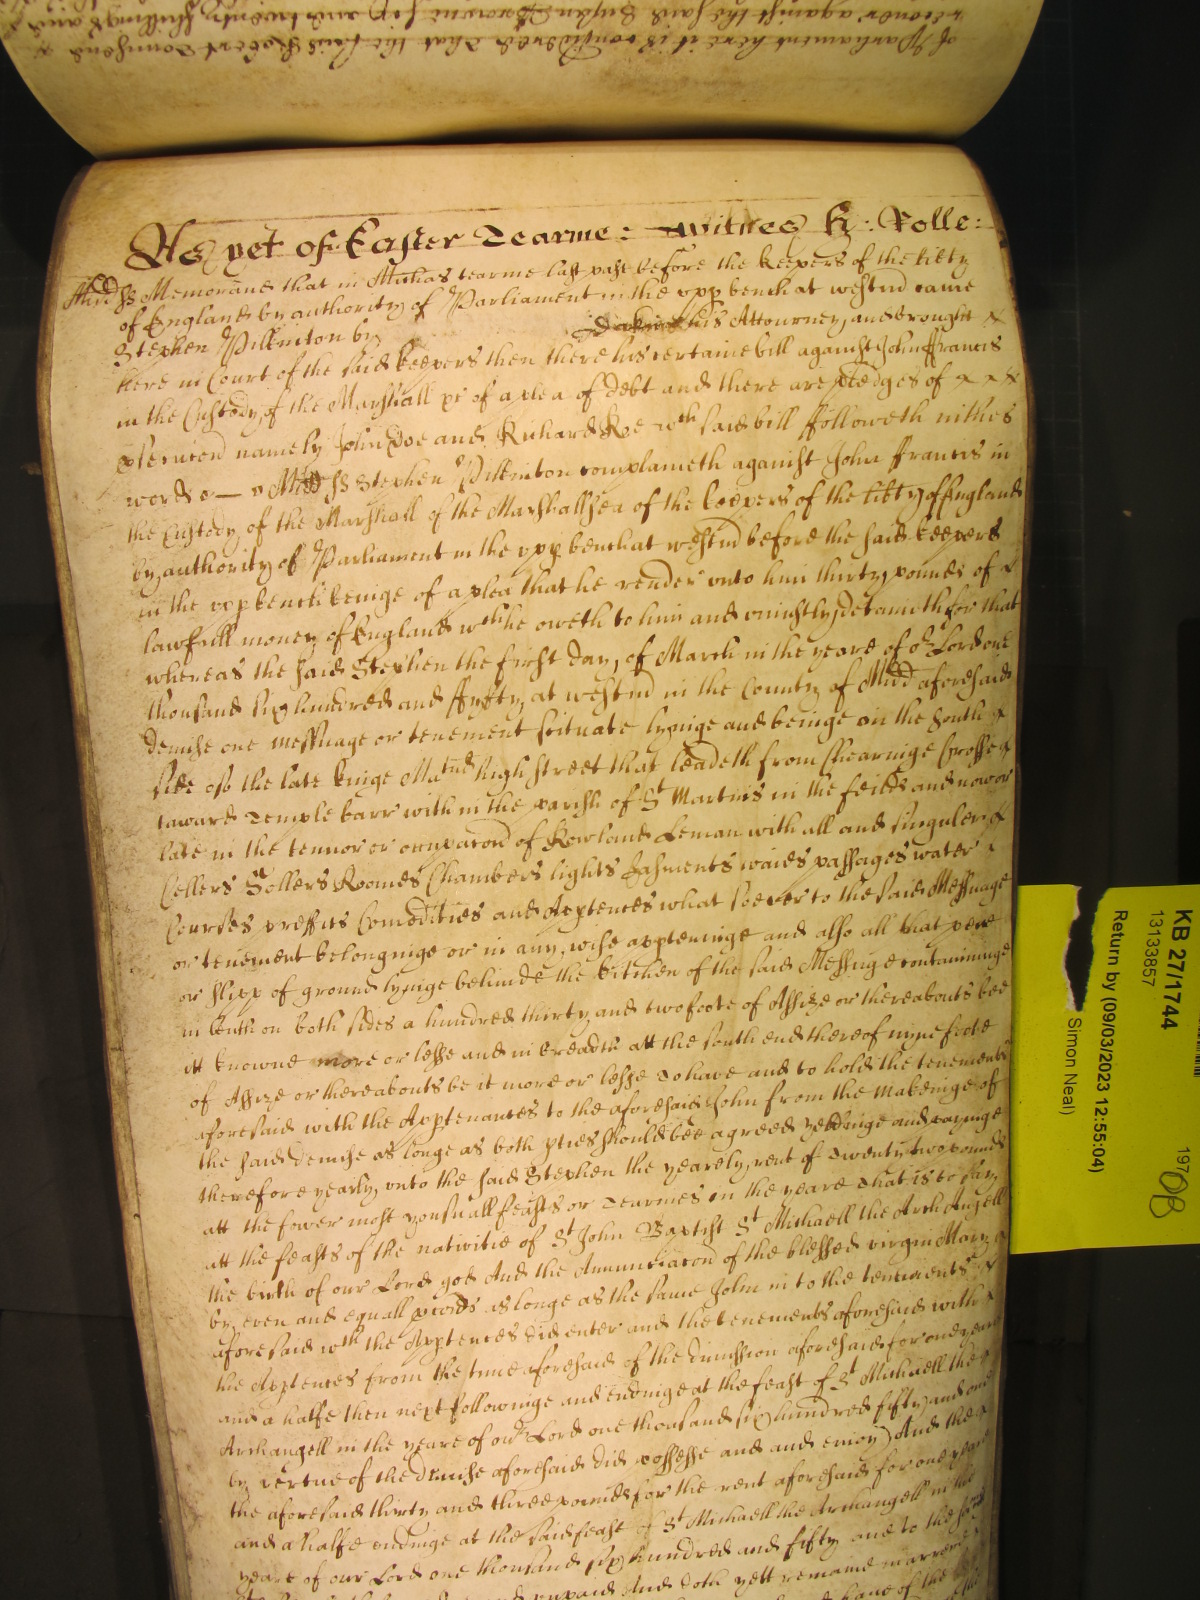 of Parliament here it is considered that the said Robert Townsend
recover against the said
As yet of Easter Tearme: Witnes H: Rolle:
Midd ss Memorand that in Michas tearme last past before the keepers of the lib'ty
of England by authority of Parliament in the upp bench at westm'd came
Stephen Pilkinton by his Attourney, and brought
here in Court of the said keepers then there his certaine bill against John ffrancis
in the Custody of the Marshall &c of a plea of debt and there are pledges of
p'secucon namely John Doe and Richard Roe w'ch said bill ffolloweth in thes
words — Midd ss Stephen Pilkinton complaineth against John ffrancis in
the Custody of the Marshall of the Marshallsea of the keepers of the lib'ty of England
by authority of Parliament in the upp bench at westm'd before the said keepers
in the upp bench beinge of a plea that he render unto him thirty pounds of
lawfull money of England w'ch he oweth to him and uniustly detaineth for that
whereas the said Stephen the first day of March in the yeare of o'r Lord one
thousand six hundred and ffyfty at westm'd in the County of Midd aforesaid
demise one messuage or tenement scituate lyinge and beinge on the South
side of the late kinge high street that leadeth from Chearinge Crosse
toward Temple barr with in the parish of St Martins in the feilds and now or
late in the tennor or occupacon of Rowland Leman with all and singuler
Cellers Sollers Roomes Chambers lights Easments waies passages water
Courses proffits Comodities and Apptences what soever to the said Messuage
or tenement belonginge or in any wise appteninge and also all that pece
or slipp of ground lyinge behinde the kitchen of the said Messuige containinge
in lenth on both sides a hundred thirty and two foote of Assize or thereabouts bee
itt knowne more or lesse and in breadth att the south end thereof nyne foote
of Assize or thereabouts be it more or lesse To have and to hold the tenements
aforesaid with the Apptenances to the aforesaid John from the makeinge of
the said demise as longe as both pties should bee agreed yeldinge and payinge
therefore yearly unto the said Stephen the yearely rent of twenty two pounds
att the fower most yousuall feasts or Tearmes in the yeare That is to say
att the feasts of the nativitie of St John Baptist St Michaell the Arch Angell
the birth of our Lord god And the Annunciacon of the blessed virgin Mary
by even and equall porcons as longe as the same John in to the tenements
aforesaid w'th the Apptences did enter and the tenements aforesaid with
the Apptences from the time aforesaid of the dimission aforesaid for one yeare
and a halfe then next followinge and endinge at the feast of St Michaell the
Archangell in the yeare of our Lord one thousand six hundred fifty and one
by vertue of the demise aforesaid did possesse and and enioy And the
the aforesaid thirty and three pounds for the rent aforesaid for one yeare
and a halfe endinge at the said feast of St Michaell the Archangell in the
yeare of our Lord one thousand six hundred and fifty and to the said
unpaid And doth yett remaine in arrere
KB 27/1744
13133857
Return by (09/03/2023 12:55:04)
Simon Neal)
1970